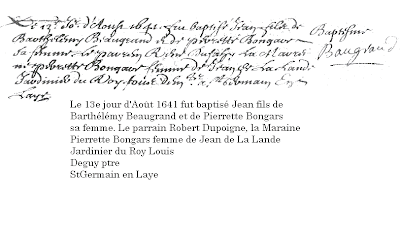 Le 13e Jor d'Aoust 1641 fut Baptisé Jean filz de
Barthélémy Beaugrand et de pierrette Bongars
sa femme. Le parein la Maraine
pierrette Bongars femme de La Lande
Jardinier du Roy St Germain En
Laye
Baptesme
Baugrand
Le 13e jour d'Août 1641 fut baptisé Jean fils de
Barthélémy Beaugrand et de Pierrette Bongars
sa femme. Le parrain Robert Dupoigne, la Maraine
Pierrette Bongars femme de Jean de La Lande
Jardinier du Roy Louis
Deguy ptre
StGermain en Laye